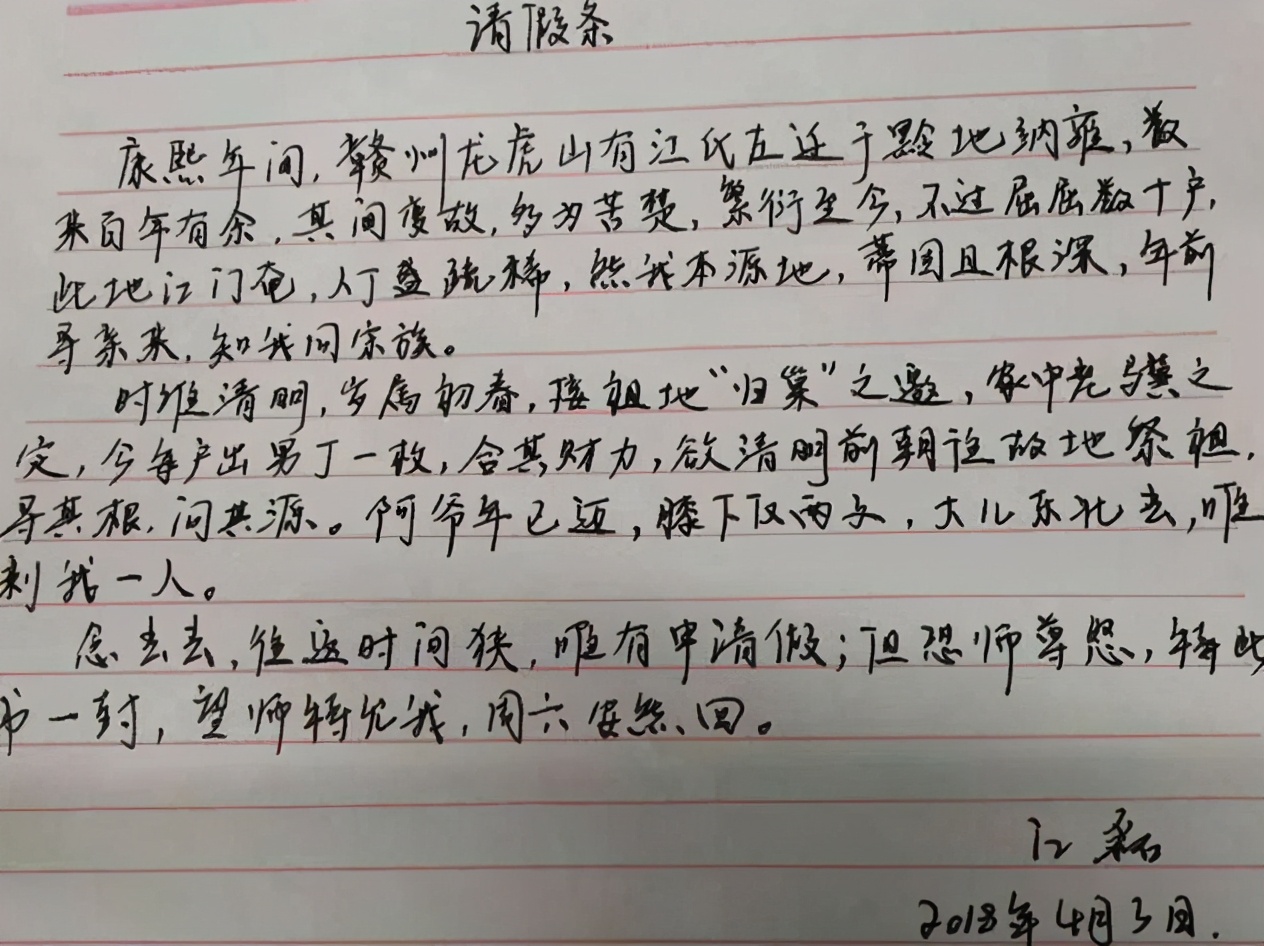 请假条
康熙年间,赣州龙虎山有江氏左迁于黔地纳雍,数
来百年有余,其间变故,多为苦楚,繁衍至今,不过屈屈数十户,
此地江门奄,人丁盖疏稀,然我本源地,蒂固且根深,年前
寻亲来,知我同宗族。
时维清明,岁属初春,接祖地“归巢”之邀,家中老
定,今每户出男丁一枚,合其财力,欲清明前朝往故地祭祖,
寻其根,问其源。阿爷年已迈,膝下仅两子,大儿东北去,唯
剩我一人。
念去去,往返时间狭,唯有申请假;但恐师尊怒,特此
书一封,望师特允我,周六安然回。
江磊
2018年4月3日.